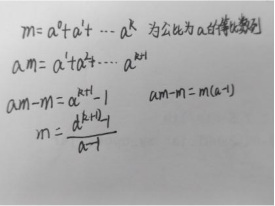 m=a⁰+a¹+ ⋯ aᵏ 为公比为a的等比数列
am=a¹+a²+⋯⋅ aᵏ⁺¹
am-m=aᵏ⁺¹-1 am-m=m(a-1)
m=\frac{a^{k+1}-1}{a-1}